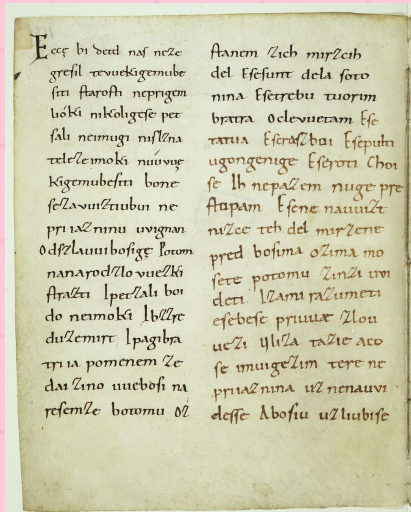 Ecce bi detd naſ neze
greſil teuuekigemube
ſiti ſtaroſti neprigem
lióki nikoligeſe pet
ſali neimugi niſlzna
teleze imoki nuúvuę
kigemubeſiti bone
ſezavuiztiubui ne
priiazninu uvignan
Odſzlauuiboſigę Potom
nanarodzlovuezki
ſtrazti Ipetzali boi
do neimoki Ibzzre
duzemirt Ipagibra
triia pomenem ze
dai zino uueboſi na
reſemze botomu oz
ſtanem zich mirzcih
del Eſeſunt dela ſoto
nina Eſetrebu tuorim
bratra Oclevuetam Eſe
tatua Eſerazboi Eſepulti
ugongenige Eſeroti Choi
ſe Ih nepazem nuge pre
ſtopam Eſene nauuizt
nizce teh del mirzene
pred boſima ozima mo
ſete potomu zinzi uvi
deti Izami razumeti
eſebeſe priuuæ zlou
uezi uliza tazie aco
ſe imuigezim tere ne
priiaznina uz nenauvi
deſſe Aboſiu uzliubiſe